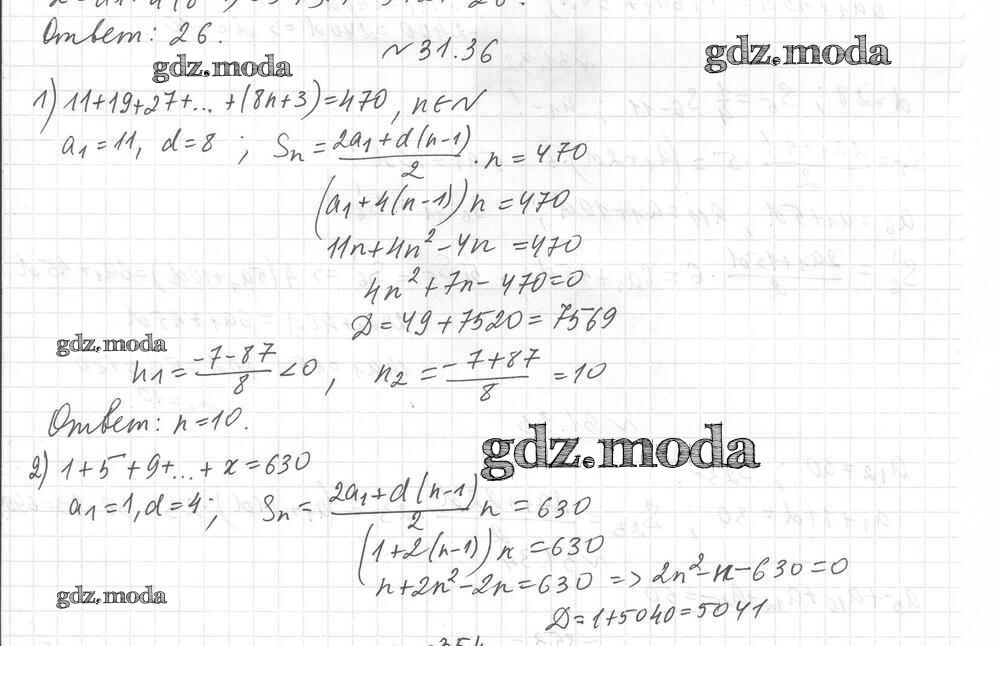 Ответ: 26.
№31.36
gdz.moda
gdz.moda
1) 11+19+27+...+(8n+3)=470, n∈N
a₁=11, d=8 ; Sₙ = (2a₁+d(n-1))/2 · n = 470
(a₁+4(n-1))n=470
11n+4n²-4n =470
4n²+7n-470=0
D=49+7520=7569
gdz.moda
n₁ = (-7-87)/8 <0, n₂ = (-7+87)/8 =10
Ответ: n=10.
gdz.moda
2) 1+5+9+...+x=630
a₁=1, d=4; Sₙ = (2a₁+d(n-1))/2 n = 630
(1+2(n-1))n =630
n+2n²-2n=630 => 2n²-n-630=0
gdz.moda
D=1+5040=5041